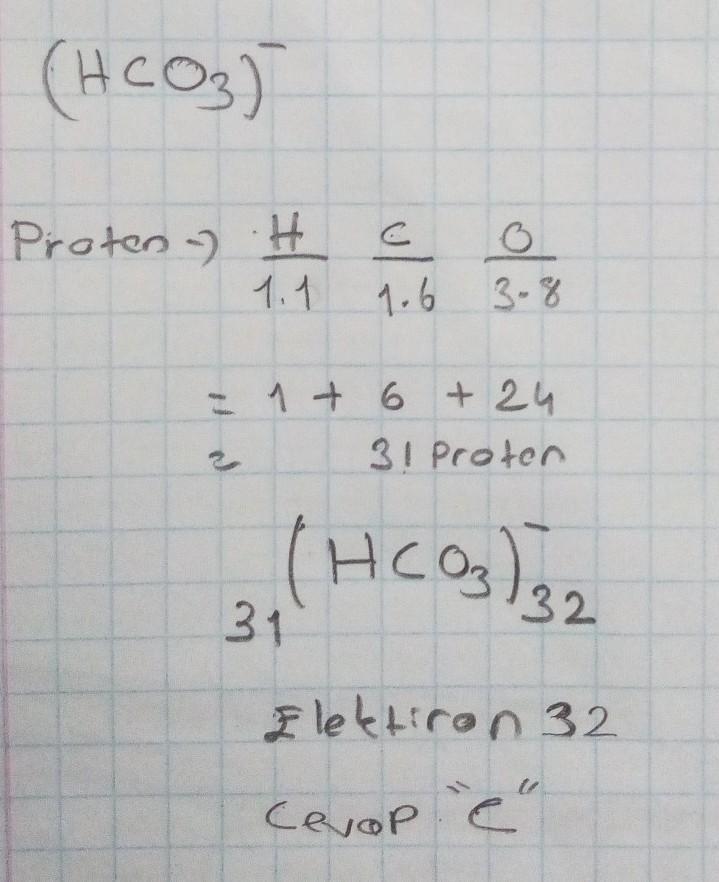 (HCO₃)⁻
Proton → H C O
1.1 1.6 3.8
= 1 + 6 + 24
= 31 Proton
₃₁(HCO₃)⁻₃₂
Elektiron 32
Cevap "C"